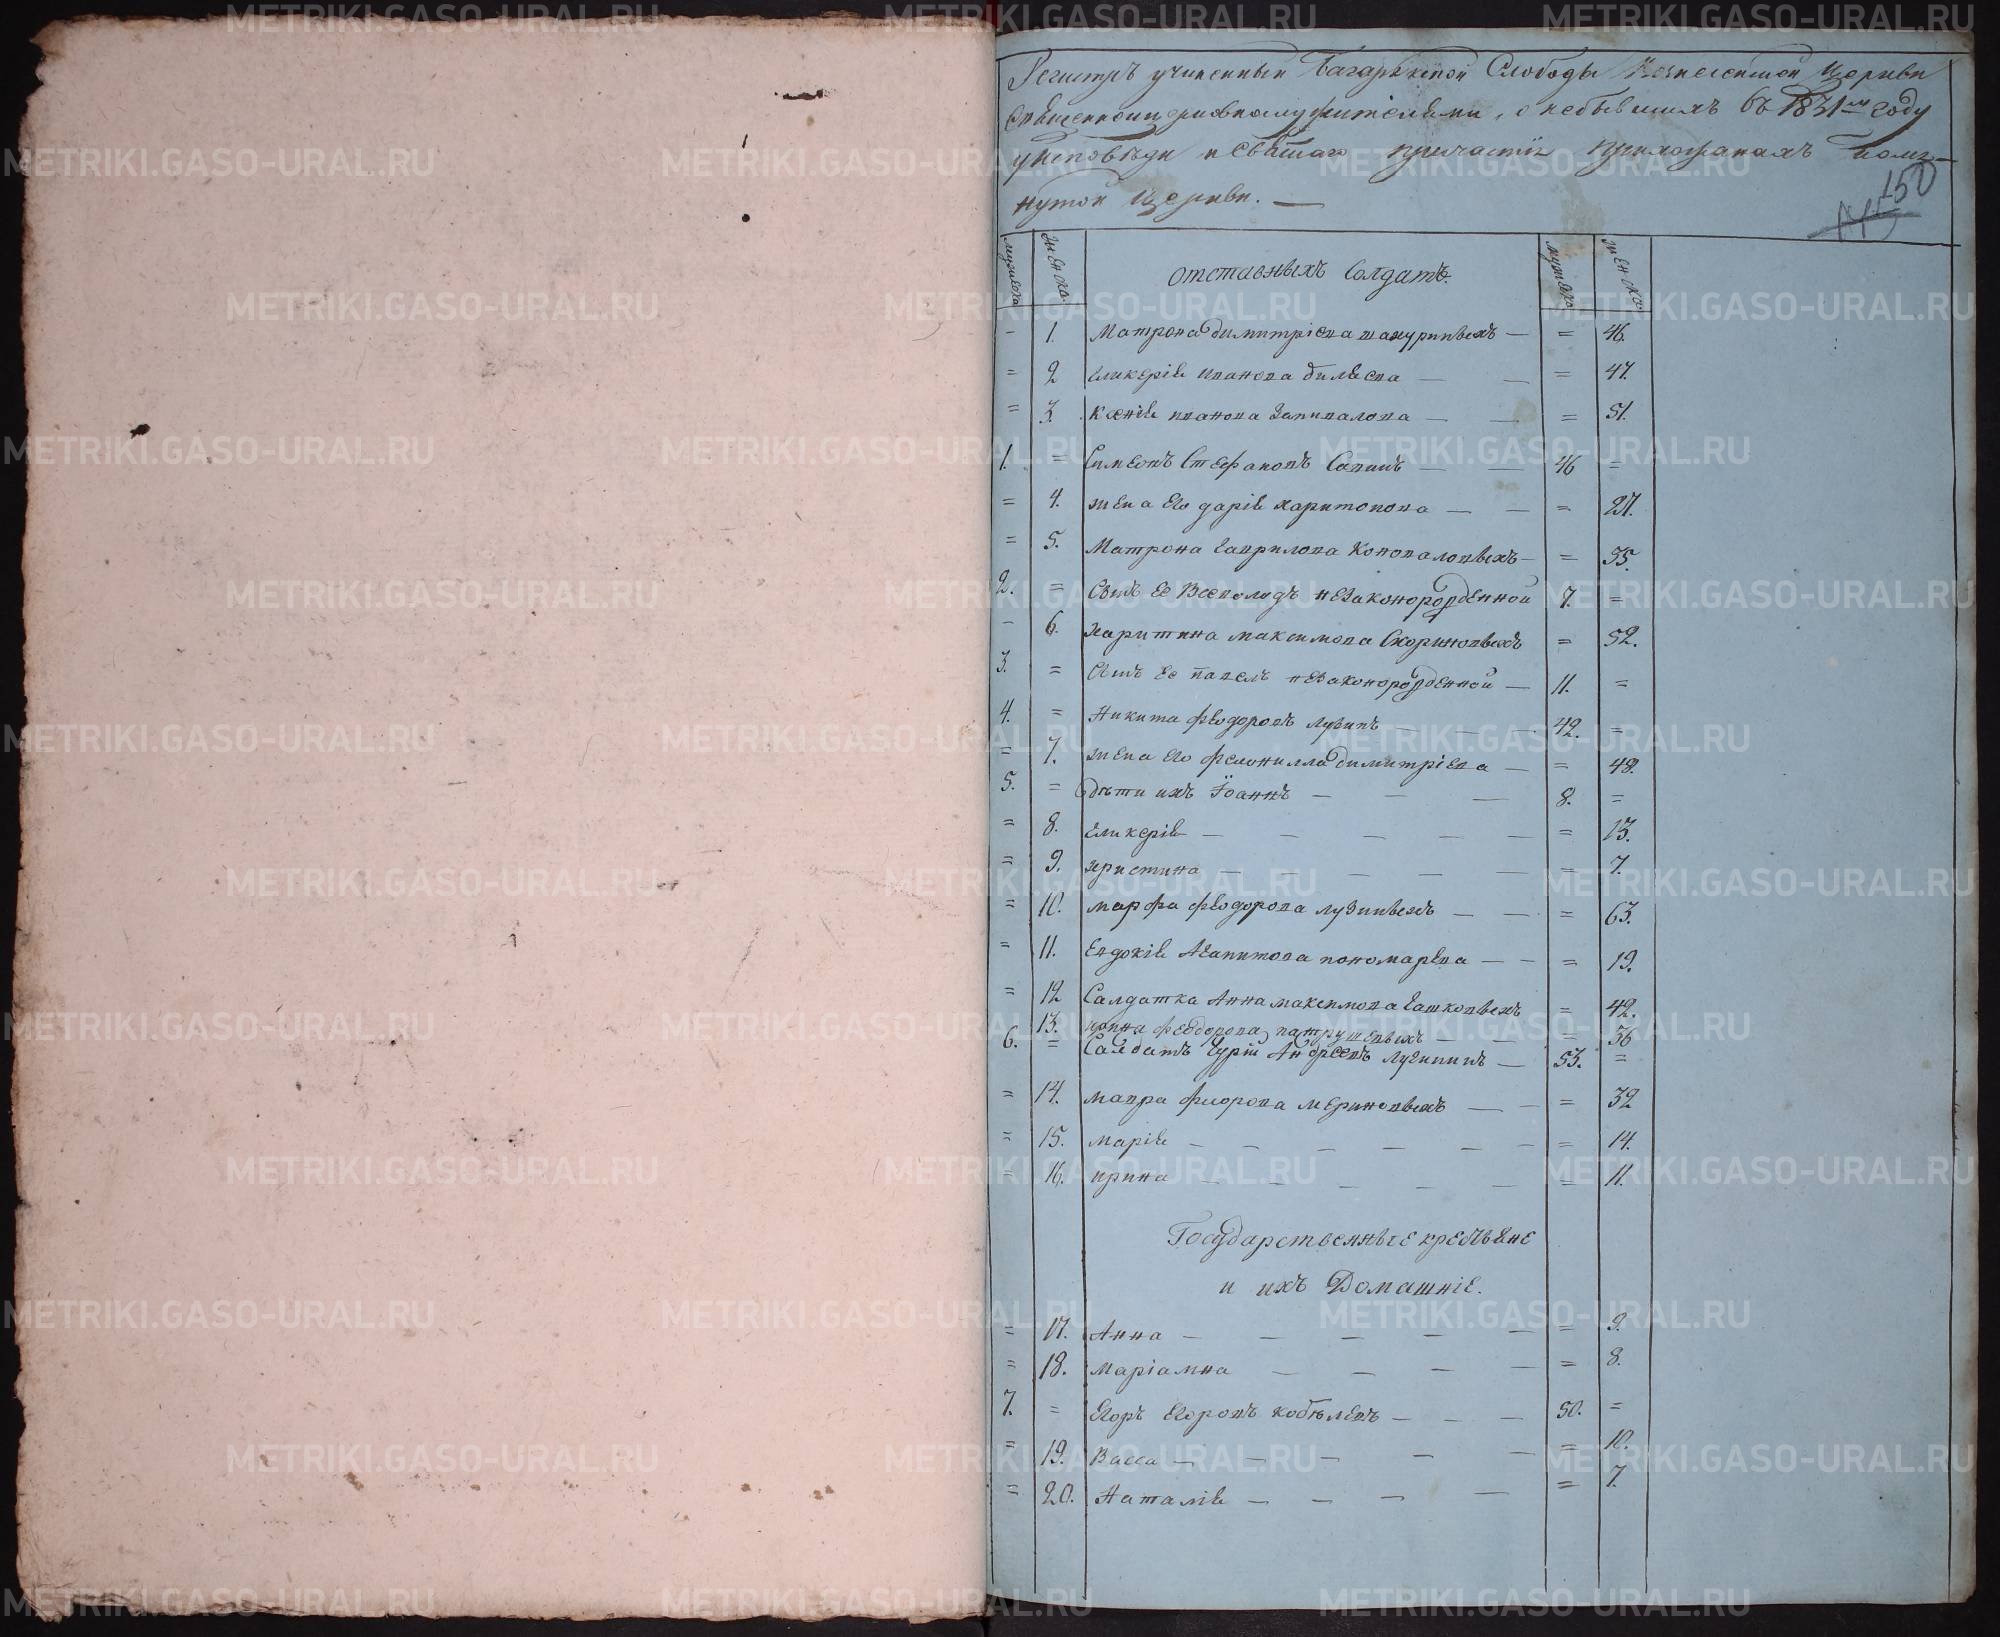 Регистръ учиненный Багарякской Слободы Вознесенской Церкви
Священноцерковнослужителями, о небывшихъ въ 1831мъ году
у исповѣди и Святаго причастія прихожанахъ помя-
нутой Церкви. —
150
мужска женска отставныхъ Солдатъ. мужска женска
= 1. Матрона Димитріева — = 46.
= 2 Гликерія иванова биляева — — = 47.
= 3. Ксенія иванова Запивалова — — = 51.
1. = Симеонъ Стефановъ Сапинъ — — 46 =
= 4. жена Его дарія харитонова — — = 27.
= 5. Матрона Гаврилова Коноваловыхъ — = 35.
2. = Сынъ Ее Всеволодъ незаконорожденной 7. =
= 6. харитина максимова Скориновыхъ = 52.
3. = Сынъ Ее павелъ незаконорожденной — 11. =
4. = Никита феодоровъ лузинъ — — — 42. =
= 7. жена Его феонилла димитріева — = 48.
5. = Дѣти ихъ Іоаннъ — — — 8. =
= 8. Гликерія — — — — — = 13.
= 9. христина — — — — — = 7.
= 10. марфа феодорова лузиныхъ — — = 63.
= 11. Евдокія Агапитова пономарева — — = 19.
= 12 Салдатка Анна максимова Гашковыхъ = 42.
13. ирина феодорова патрушевыхъ — — = 36
6. = Салдатъ Гурій Андреевъ лузининъ — 53. =
= 14. мавра флорова мериновыхъ — — = 32
= 15. марія — — — — — = 14.
= 16. ирина — — — — — = 11.
Государственные крестьяне
и ихъ Домашніе.
= 17. Анна — — — — — = 9.
= 18. маріамна — — — — = 8.
7. = Егоръ Егоровъ кобелевъ — — — 50. =
= 19. Васса — — — — — = 10.
= 20. Наталія — — — — = 7.
METRIKI.GASO-URAL.RU